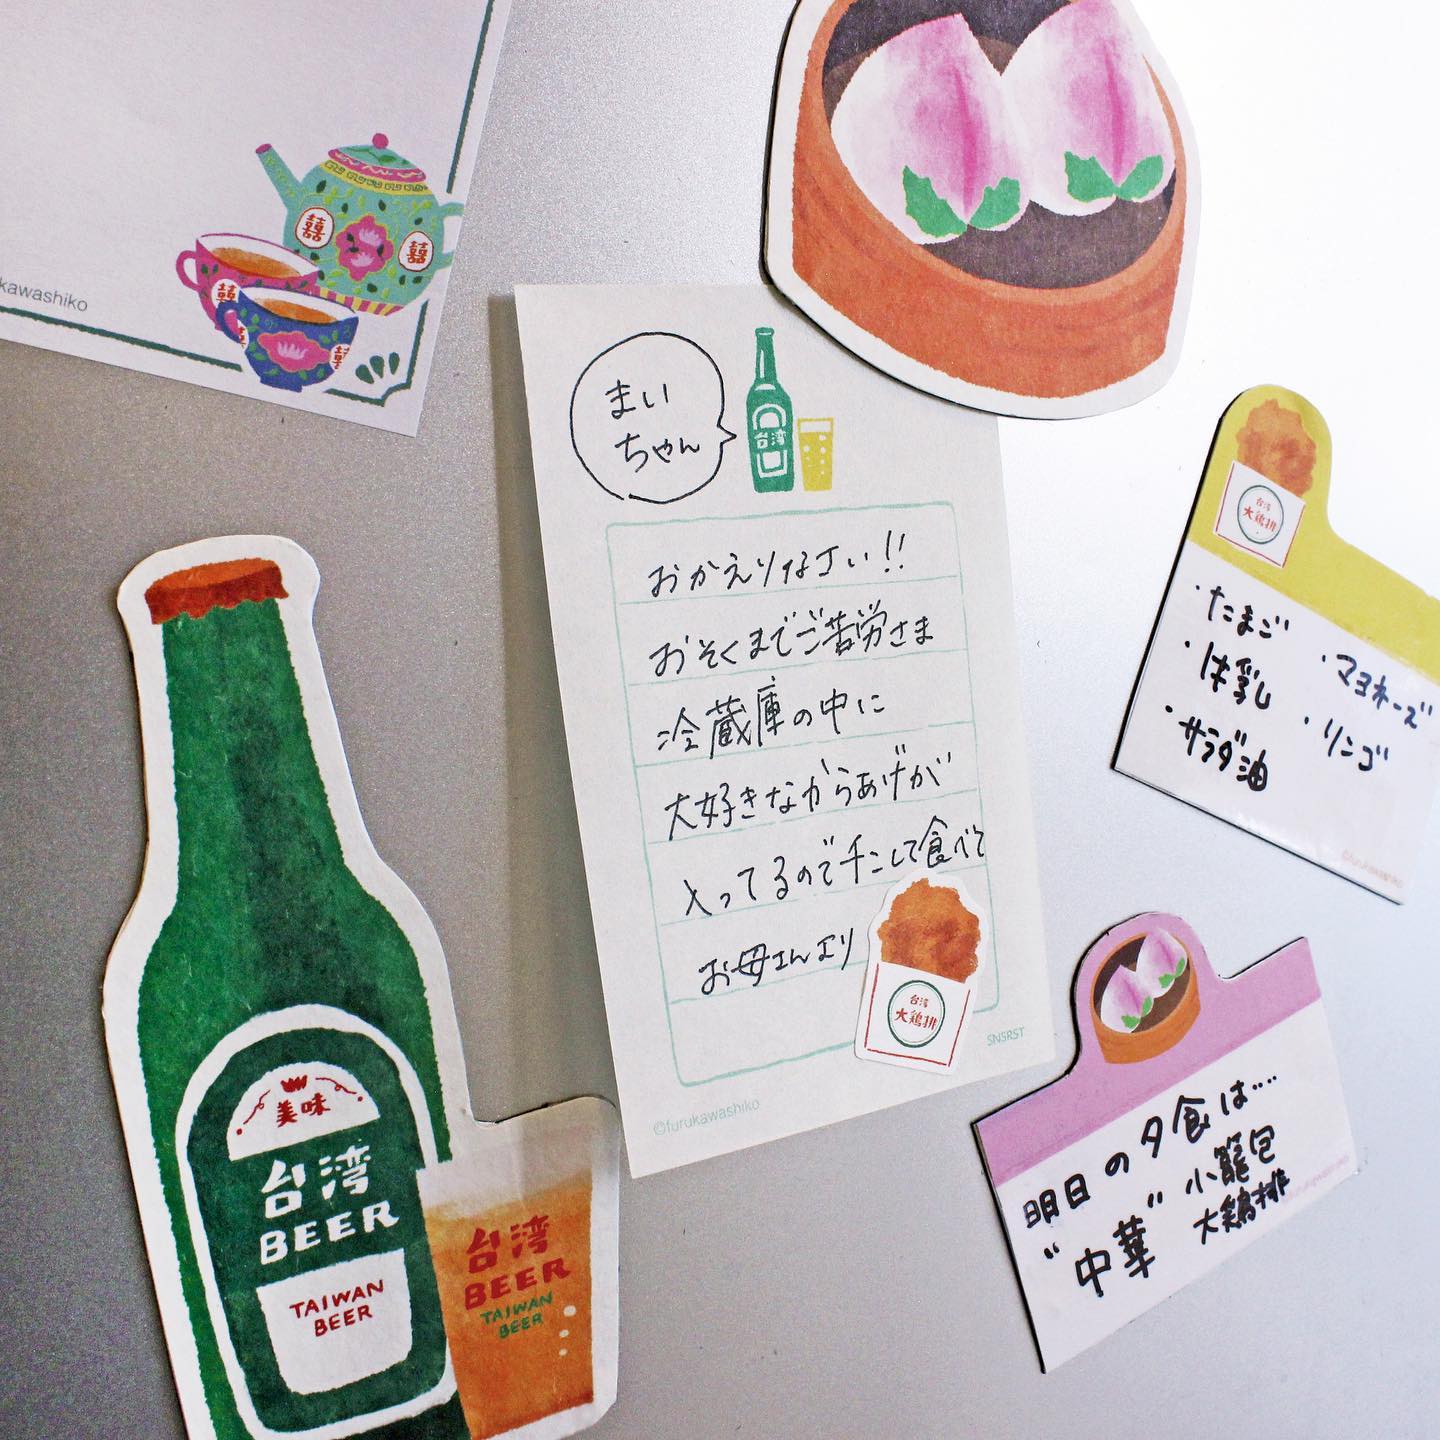 囍
囍
囍
囍
囍
kawashiko
まい
ちゃん
台湾
おかえりなさい!!
おそくまでご苦労さま
冷蔵庫の中に
大好きなからあげが
入ってるのでチンして食べて
お母さんより
台湾
大鶏排
SNSRST
©furukawashiko
台湾
大鶏排
・たまご
・牛乳
・サラダ油
・マヨネーズ
・リンゴ
©furukawashiko
明日の夕食は....
"中華"
小籠包
大鶏排
美味
台湾
BEER
TAIWAN
BEER
台湾
BEER
TAIWAN
BEER